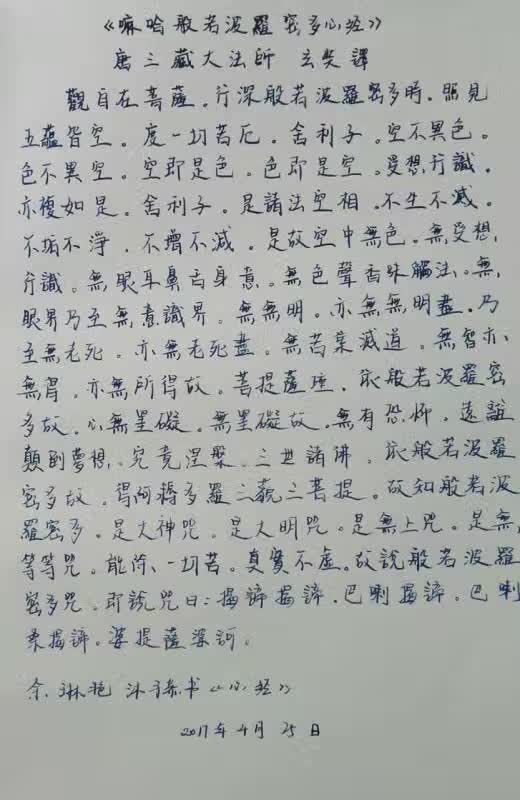 《嘛哈般若波羅密多心经》
唐三藏大法師 玄奘譯
觀自在菩薩。行深般若波羅密多時。照見
五蘊皆空。度一切苦厄。舍利子。空不異色。
色不異空。空即是色。色即是空。受想行識。
亦複如是。舍利子。是諸法空相。不生不滅。
不垢不淨。不增不减。是故空中無色。無受想,
行識。無眼耳鼻舌身意。無色聲香味觸法。無,
眼界乃至無意識界。無無明。亦無無明盡。乃
至無老死。亦無老死盡。無苦集滅道。無智亦、
無得。亦無所得故。菩提薩埵。依般若波羅密
多故。心無罣礙。無罣礙故。無有恐怖。遠離
顛倒夢想。究竟涅槃。三世諸佛。依般若波羅
密多故。得阿耨多羅三藐三菩提。故知般若波
羅密多。是大神咒。是大明咒。是無上咒。是無,
等等咒。能除、一切苦。真實不虛。故說般若波羅
密多咒。即說咒曰:揭諦揭諦。巴喇揭諦。巴喇
桑揭諦。婆提薩婆訶。
余琳艳 沐手书《心经》
2017年4月25日